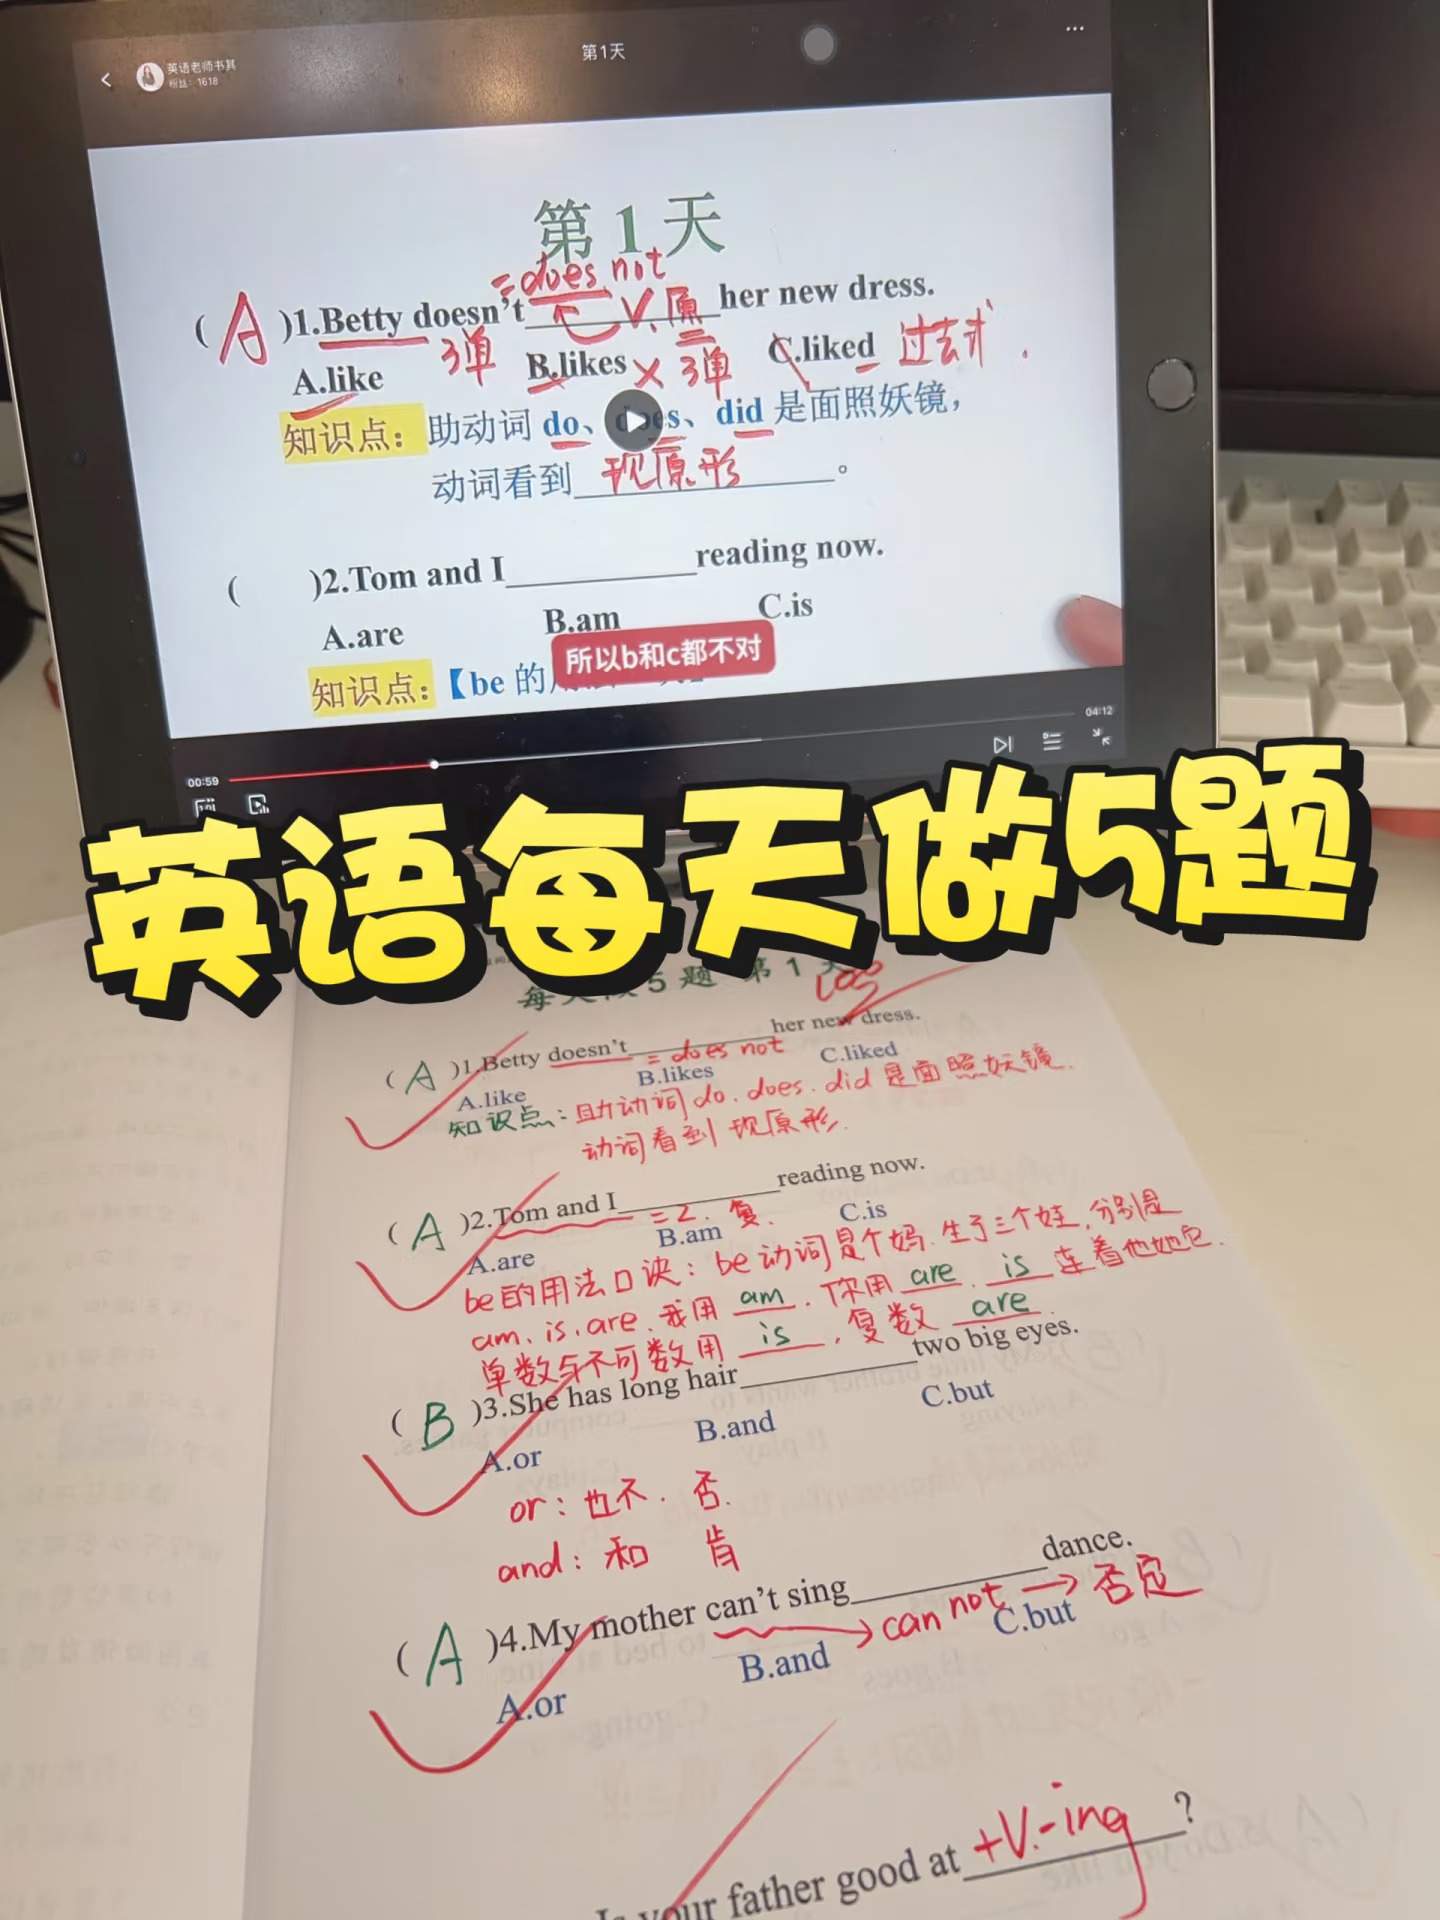 英语老师书其
粉丝：1618
第1天
第1天
=does not
( A )1.Betty doesn't____ V.原 her new dress.
A.like 3弹 B.likes × 3弹 C.liked 过去式.
知识点：助动词 do、does、did 是面照妖镜，
动词看到 现原形 。
( )2.Tom and I____reading now.
A.are B.am C.is
知识点：【be 的
所以b和c都不对
00:59
04:12
英语每天做5题
每天做5题 第1天
( A )1.Betty doesn't____her new dress.
= does not
A.like B.likes C.liked
知识点：助动词 do、does、did 是面照妖镜.
动词看到 现原形.
( A )2.Tom and I____reading now.
=2. 复.
A.are B.am C.is
be的用法口诀：be动词是个妈.生了三个娃,分别是
am、is、are.我用 am . 你用 are . is 连着他她它.
单数与不可数用 is , 复数 are
( B )3.She has long hair____two big eyes.
A.or B.and C.but
or：也不. 否.
and：和 肯
( A )4.My mother can't sing____dance.
can not → 否定
A.or B.and C.but
Is your father good at +V.-ing ?